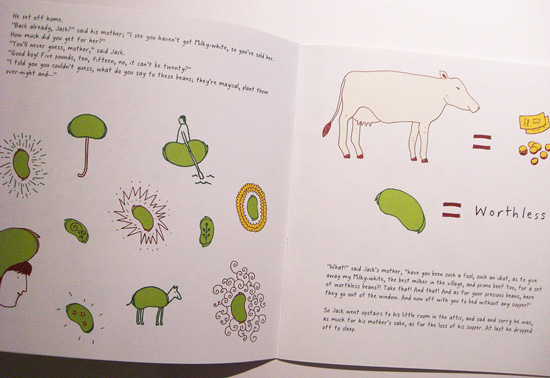 He set off home.
"Back already, Jack?" said his mother; "I see you haven't got Milky-white, so you've sold her.
How much did you get for her?"
"You'll never guess, mother," said Jack.
"Good boy! Five pounds, ten, fifteen, no, it can't be twenty?"
"I told you you couldn't guess, what do you say to these beans; they're magical, plant them
over-night and..."
= 
= Worthless
"What!" said Jack's mother, "have you been such a fool, such an idiot, as to give
away my Milky-white, the best milker in the village, and prime beef too, for a set
of worthless beans?! Take that! And that! And as for your precious beans, here
they go out of the window. And now off with you to bed without any supper!"
So Jack went upstairs to his little room in the attic, and sad and sorry he was,
as much for his mother's sake, as for the loss of his supper. At last he dropped
off to sleep.